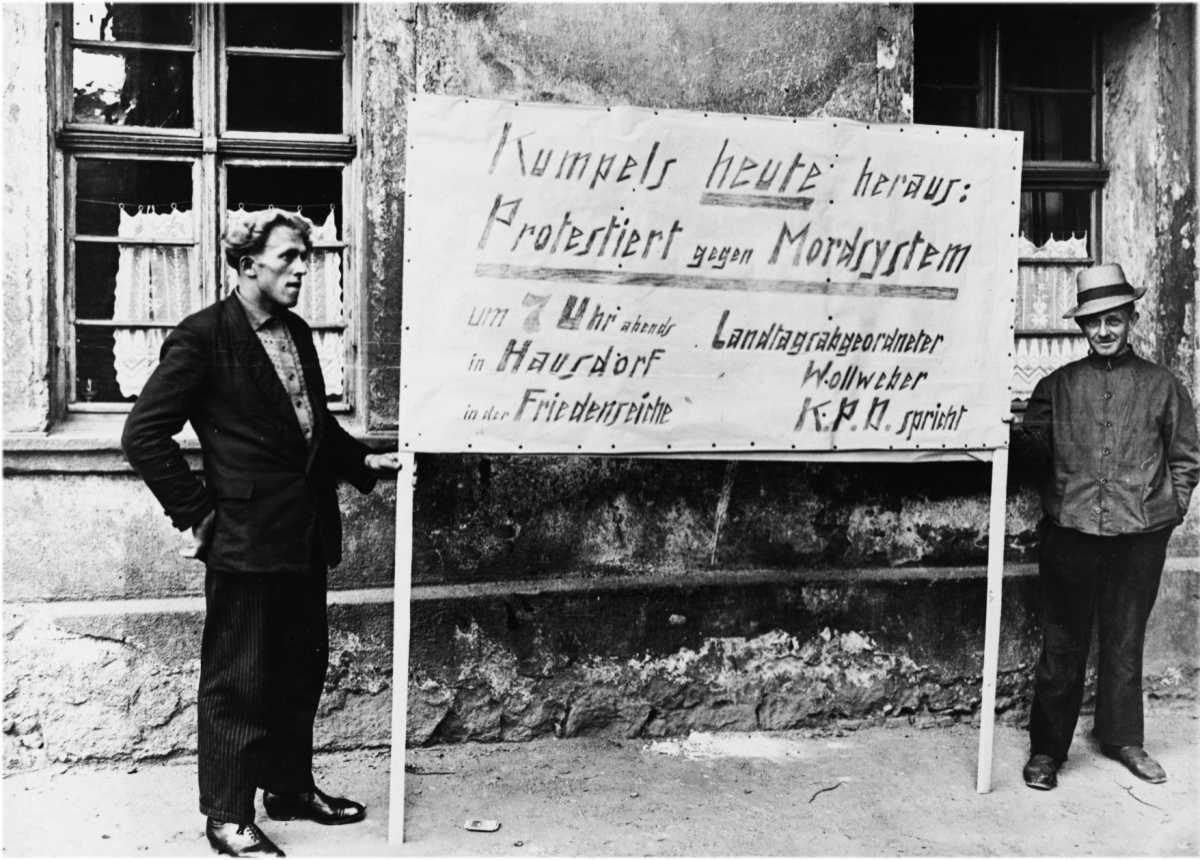 Kumpels heute heraus:
Protestiert gegen Mordsystem
um 7 Uhr abends
in Hausdorf
in der Friedenseiche
Landtagrabgeordneter
Wollweber
K.P.D. spricht